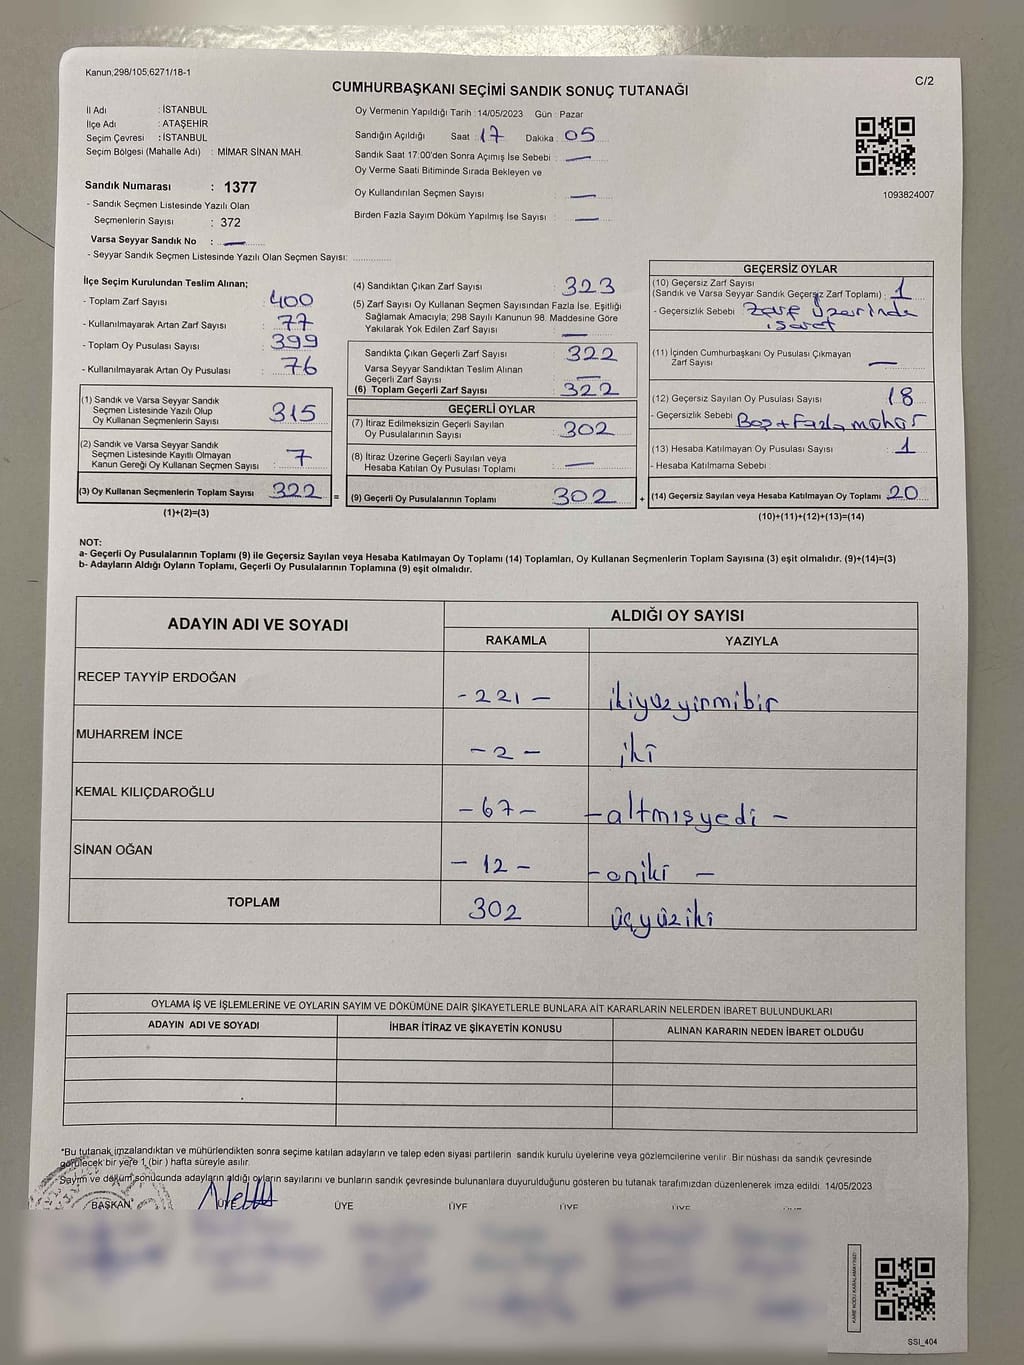 Kanun;298/105,6271/18-1
C/2
CUMHURBAŞKANI SEÇİMİ SANDIK SONUÇ TUTANAĞI
İl Adı : İSTANBUL
İlçe Adı : ATAŞEHİR
Seçim Çevresi : İSTANBUL
Seçim Bölgesi (Mahalle Adı) : MİMAR SİNAN MAH.
Sandık Numarası : 1377
- Sandık Seçmen Listesinde Yazılı Olan
Seçmenlerin Sayısı : 372
Varsa Seyyar Sandık No : —
- Seyyar Sandık Seçmen Listesinde Yazılı Olan Seçmen Sayısı:
Oy Vermenin Yapıldığı Tarih : 14/05/2023 Gün : Pazar
Sandığın Açıldığı Saat : 17 Dakika : 05
Sandık Saat 17:00'den Sonra Açımış İse Sebebi : —
Oy Verme Saati Bitiminde Sırada Bekleyen ve
Oy Kullandırılan Seçmen Sayısı : —
Birden Fazla Sayım Döküm Yapılmış İse Sayısı : —
1093824007
İlçe Seçim Kurulundan Teslim Alınan;
- Toplam Zarf Sayısı : 400
- Kullanılmayarak Artan Zarf Sayısı : 77
- Toplam Oy Pusulası Sayısı : 399
- Kullanılmayarak Artan Oy Pusulası : 76
(1) Sandık ve Varsa Seyyar Sandık
Seçmen Listesinde Yazılı Olup
Oy Kullanan Seçmenlerin Sayısı : 315
(2) Sandık ve Varsa Seyyar Sandık
Seçmen Listesinde Kayıtlı Olmayan
Kanun Gereği Oy Kullanan Seçmen Sayısı : 7
(3) Oy Kullanan Seçmenlerin Toplam Sayısı : 322 =
(1)+(2)=(3)
(4) Sandıktan Çıkan Zarf Sayısı : 323
(5) Zarf Sayısı Oy Kullanan Seçmen Sayısından Fazla İse, Eşitliği
Sağlamak Amacıyla; 298 Sayılı Kanunun 98. Maddesine Göre
Yakılarak Yok Edilen Zarf Sayısı : —
Sandıkta Çıkan Geçerli Zarf Sayısı : 322
Varsa Seyyar Sandıktan Teslim Alınan
Geçerli Zarf Sayısı : —
(6) Toplam Geçerli Zarf Sayısı : 322
GEÇERLİ OYLAR
(7) İtiraz Edilmeksizin Geçerli Sayılan
Oy Pusulalarının Sayısı : 302
(8) İtiraz Üzerine Geçerli Sayılan veya
Hesaba Katılan Oy Pusulası Toplamı : —
(9) Geçerli Oy Pusulalarının Toplamı : 302 +
GEÇERSİZ OYLAR
(10) Geçersiz Zarf Sayısı
(Sandık ve Varsa Seyyar Sandık Geçersiz Zarf Toplamı) : 1
- Geçersizlik Sebebi : Zarf Üzerinde
işaret
(11) İçinden Cumhurbaşkanı Oy Pusulası Çıkmayan
Zarf Sayısı : —
(12) Geçersiz Sayılan Oy Pusulası Sayısı : 18
- Geçersizlik Sebebi : Boş+Fazla mühür
(13) Hesaba Katılmayan Oy Pusulası Sayısı : 1
- Hesaba Katılmama Sebebi :
(14) Geçersiz Sayılan veya Hesaba Katılmayan Oy Toplamı : 20
(10)+(11)+(12)+(13)=(14)
NOT:
a- Geçerli Oy Pusulalarının Toplamı (9) ile Geçersiz Sayılan veya Hesaba Katılmayan Oy Toplamı (14) Toplamları, Oy Kullanan Seçmenlerin Toplam Sayısına (3) eşit olmalıdır. (9)+(14)=(3)
b- Adayların Aldığı Oyların Toplamı, Geçerli Oy Pusulalarının Toplamına (9) eşit olmalıdır.
ADAYIN ADI VE SOYADI
ALDIĞI OY SAYISI
RAKAMLA YAZIYLA
RECEP TAYYİP ERDOĞAN - 221 - ikiyüzyirmibir
MUHARREM İNCE - 2 - iki
KEMAL KILIÇDAROĞLU - 67 - - altmışyedi -
SİNAN OĞAN - 12 - - oniki -
TOPLAM 302 üçyüziki
OYLAMA İŞ VE İŞLEMLERİNE VE OYLARIN SAYIM VE DÖKÜMÜNE DAİR ŞİKAYETLERLE BUNLARA AİT KARARLARIN NELERDEN İBARET BULUNDUKLARI
ADAYIN ADI VE SOYADI İHBAR İTİRAZ VE ŞİKAYETİN KONUSU ALINAN KARARIN NEDEN İBARET OLDUĞU
*Bu tutanak imzalandıktan ve mühürlendikten sonra seçime katılan adayların ve talep eden siyasi partilerin sandık kurulu üyelerine veya gözlemcilerine verilir. Bir nüshası da sandık çevresinde
görülecek bir yere 1 (bir ) hafta süreyle asılır.
Sayım ve döküm sonucunda adayların aldığı oyların sayılarını ve bunların sandık çevresinde bulunanlara duyurulduğunu gösteren bu tutanak tarafımızdan düzenlenerek imza edildi. 14/05/2023
BAŞKAN ÜYE ÜYE ÜYE ÜYE ÜYE ÜYE
SSI_404